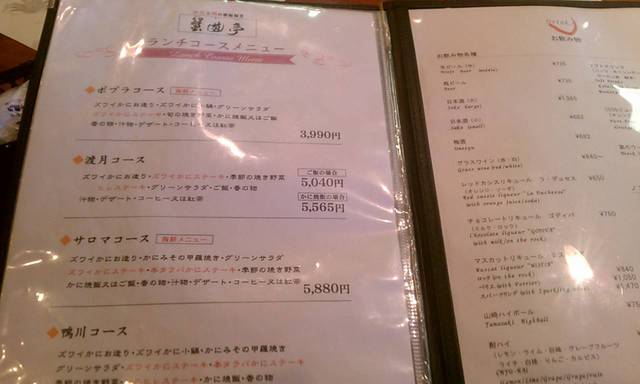 蟹遊亭
ランチコースメニュー
Lunch Course Menu
◆ポプラコース 海鮮メニュー
ズワイかにお造り・ズワイかに小鍋・グリーンサラダ
ズワイかにステーキ・旬の焼き野菜・かに焼飯又はご飯
香の物・汁物・デザート・コーヒー又は紅茶
3,990円
◆渡月コース
ズワイかにお造り・ズワイかにステーキ・季節の焼き野菜
ヒレステーキ・グリーンサラダ・ご飯・香の物
汁物・デザート・コーヒー又は紅茶
ご飯の場合
5,040円
かに焼飯の場合
5,565円
◆サロマコース 海鮮メニュー
ズワイかにお造り・かにみその甲羅焼き・グリーンサラダ
ズワイかにステーキ・本タラバかにステーキ・季節の焼き野菜
かに焼飯又はご飯・香の物・汁物・デザート・コーヒー又は紅茶
5,880円
◆鴨川コース
ズワイかにお造り・ズワイかに小鍋・かにみその甲羅焼き
グリーンサラダ・ズワイかにステーキ・本タラバかにステーキ
かに焼飯・香の物
Drink
お飲み物
お飲み物各種
生ビール(中) ¥735
瓶ビール ¥735
Beer
日本酒(大) ¥1,365
Sake (large)
日本酒(小) ¥682
Sake (small)
梅酒 ¥682
グラスワイン(赤・白) ¥840~
Grass wine (red/white)
レッドカシスリキュール ラ・デュセス ¥650
(オレンジ・ソーダ)
With orange juice/soda)
チョコレートリキュール ゴディバ ¥750
(ミルク・ロック)
Chocolate liqueur "GODIVA"
With milk/on the rock)
マスカットリキュール ミスティア
¥840
¥1,050
¥1,470
山崎ハイボール ¥750
Yamazaki Highball
酎ハイ
(レモン・ライム・巨峰・グレープフルーツ
ライチ・白桃・りんご・カルピス)